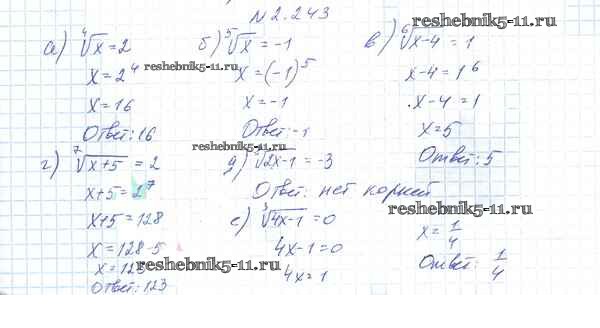 № 2.243
reshebnik5-11.ru
а) ⁴√x = 2
x = 2⁴
x = 16
Ответ: 16
б) ⁵√x = -1
x = (-1)⁵
x = -1
Ответ: -1
в) ⁶√x-4 = 1
x-4 = 1⁶
x-4 = 1
x = 5
Ответ: 5
reshebnik5-11.ru
reshebnik5-11.ru
г) ⁷√x+5 = 2
x+5 = 2⁷
x+5 = 128
x = 128-5
x = 123
Ответ: 123
д) √2x-1 = -3
Ответ: нет корней
reshebnik5-11.ru
е) √4x-1 = 0
4x-1 = 0
4x = 1
x = 1/4
Ответ: 1/4
reshebnik5-11.ru